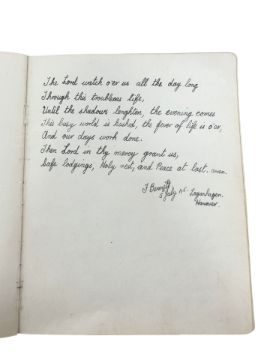 The Lord watch o'er us all the day long
Through this troublous life,
Until the shadows lengthen, the evening comes
This busy world is hushed, the fever of life is o'er,
And our days work done.
Then Lord in thy mercy grant us,
Safe lodgings, Holy rest, and Peace at last. Amen.
July
Hanover.